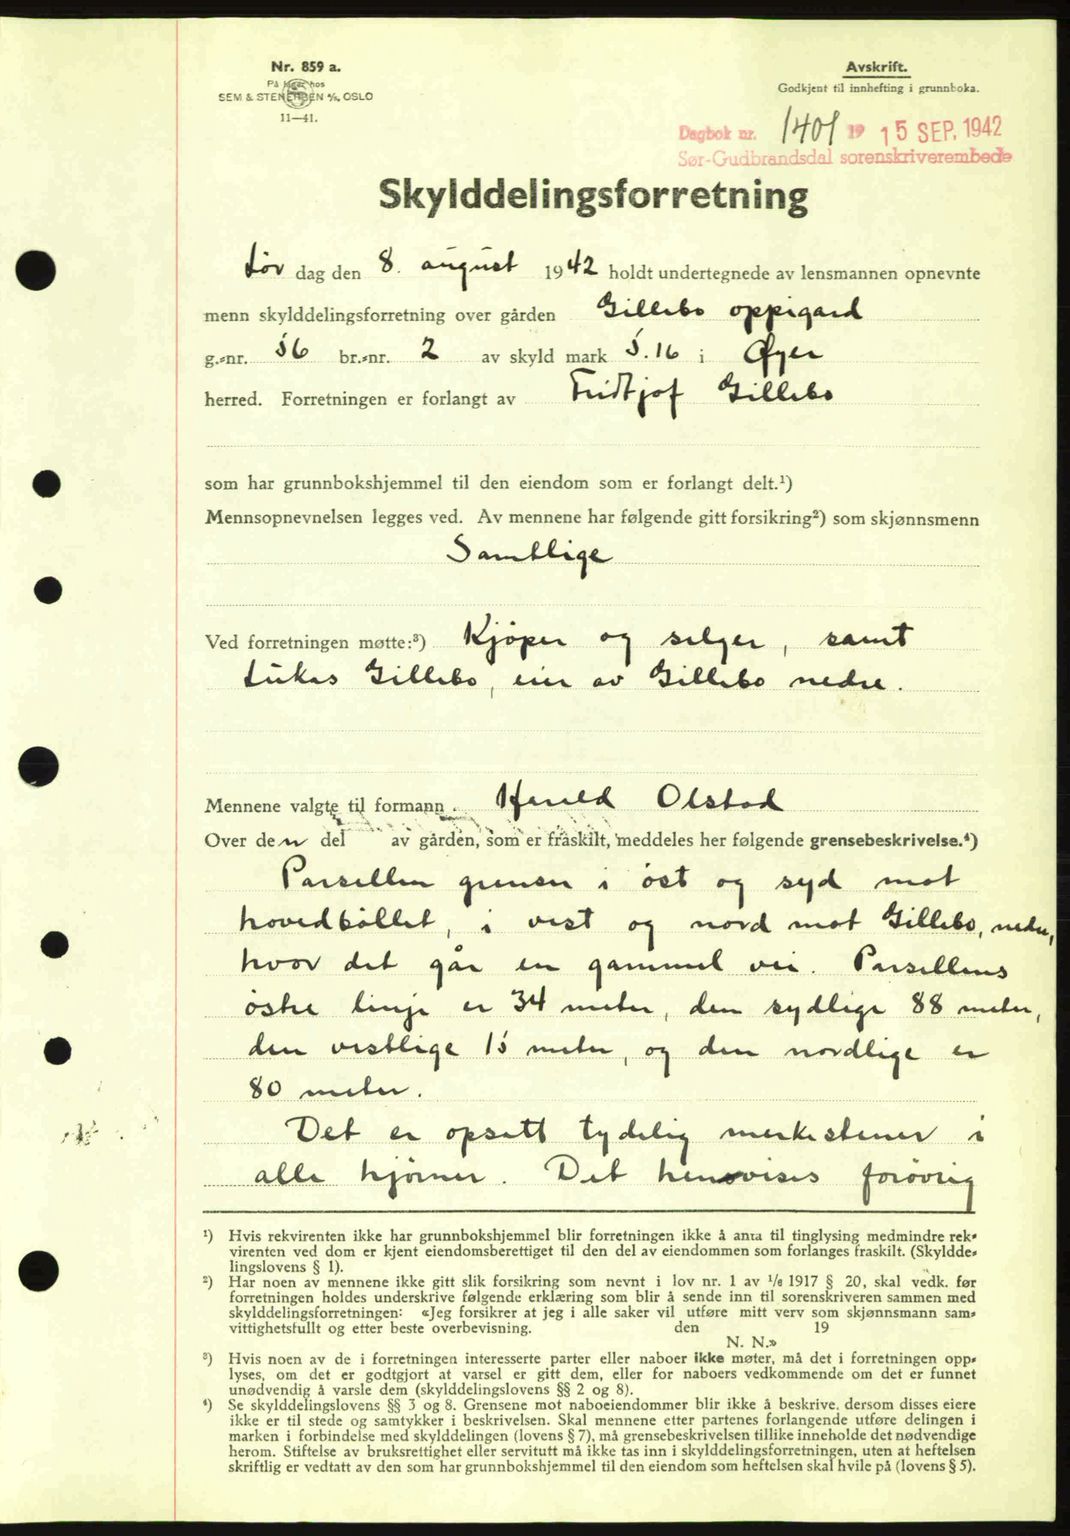 Nr. 859 a.
På lager hos
SEM & STENERSEN A/S, OSLO
11—41.
Avskrift.
Godkjent til innhefting i grunnboka.
Dagbok nr. 1401 19 15 SEP. 1942
Sør-Gudbrandsdal sorenskriverembede
Skylddelingsforretning
Lør dag den 8. august 1942 holdt undertegnede av lensmannen opnevnte
menn skylddelingsforretning over gården Gillebo oppigard
g.-nr. 56 br.-nr. 2 av skyld mark 5.16 i Øyer
herred. Forretningen er forlangt av Fridtjof Gillebo
som har grunnbokshjemmel til den eiendom som er forlangt delt.¹)
Mennsopnevnelsen legges ved. Av mennene har følgende gitt forsikring²) som skjønnsmenn
Samtlige
Ved forretningen møtte:³) Kjöper og selger, samt
Lukas Gillebo, eier av Gillebo nedre.
Mennene valgte til formann Harald Olstad
Over den del av gården, som er fraskilt, meddeles her følgende grensebeskrivelse.⁴)
Parsellen grenser i öst og syd mot
hovedbøllet, i vest og nord mot Gillebo, nedre,
hvor det går en gammel vei. Parsellens
östre linje er 34 meter, den sydlige 88 meter,
den vestlige 15 meter, og den nordlige er
80 meter.
Det er opsatt tydelig merkestener i
alle hjörner. Det henvises forövrig
¹) Hvis rekvirenten ikke har grunnbokshjemmel blir forretningen ikke å anta til tinglysing medmindre rek-
virenten ved dom er kjent eiendomsberettiget til den del av eiendommen som forlanges fraskilt. (Skyldde-
lingslovens § 1).
²) Har noen av mennene ikke gitt slik forsikring som nevnt i lov nr. 1 av 1/6 1917 § 20, skal vedk. før
forretningen holdes underskrive følgende erklæring som blir å sende inn til sorenskriveren sammen med
skylddelingsforretningen: «Jeg forsikrer at jeg i alle saker vil utføre mitt verv som skjønnsmann sam-
vittighetsfullt og etter beste overbevisning. den 19
N. N.»
³) Hvis noen av de i forretningen interesserte parter eller naboer ikke møter, må det i forretningen opp-
lyses, om det er godtgjort at varsel er gitt dem, eller for naboers vedkommende om det er funnet
unødvendig å varsle dem (skylddelingslovens §§ 2 og 8).
⁴) Se skylddelingslovens §§ 3 og 8. Grensene mot naboeiendommer blir ikke å beskrive, dersom disses eiere
ikke er til stede og samtykker i beskrivelsen. Skal mennene etter partenes forlangende utføre delingen i
marken i forbindelse med skylddelingen (lovens § 7), må grensebeskrivelsen tillike inneholde det nødvendige
herom. Stiftelse av bruksrettighet eller servitutt må ikke tas inn i skylddelingsforretningen, uten at heftelsen
skriftlig er vedtatt av den som har grunnbokshjemmel til den eiendom som heftelsen skal hvile på (lovens § 5).